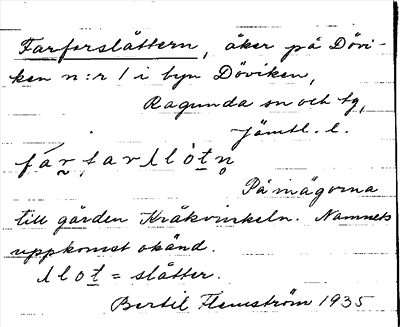 Farforslåttern, åker på Dövi-
ken n:r 1 i byn Döviken,
Ragunda sn och tg,
Jämtl. l.
fár̰farllòt̲n̥
På inägorna
till gården Kråkvinkeln. Namnets
uppkomst okänd.
llot̲ = slåtter.
Bertil Flemström 1935